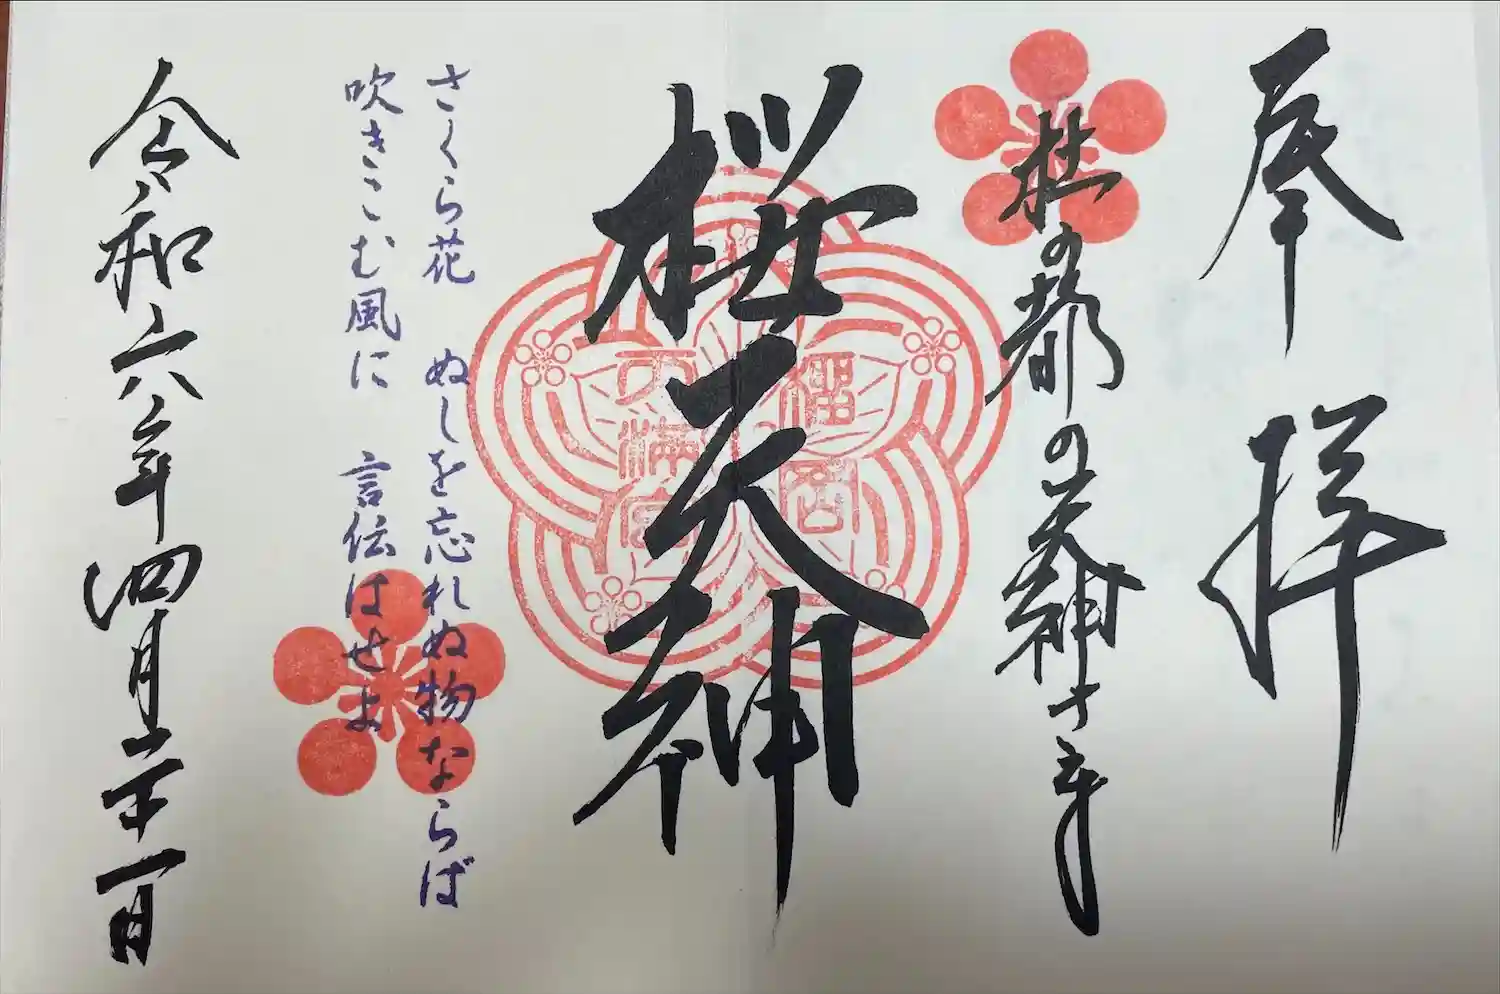 奉拝
杜の都の天神さま
桜天神
榴岡
天満宮
さくら花 ぬしを忘れぬ物ならば
吹きこむ風に 言伝はせよ
令和六年四月二十一日